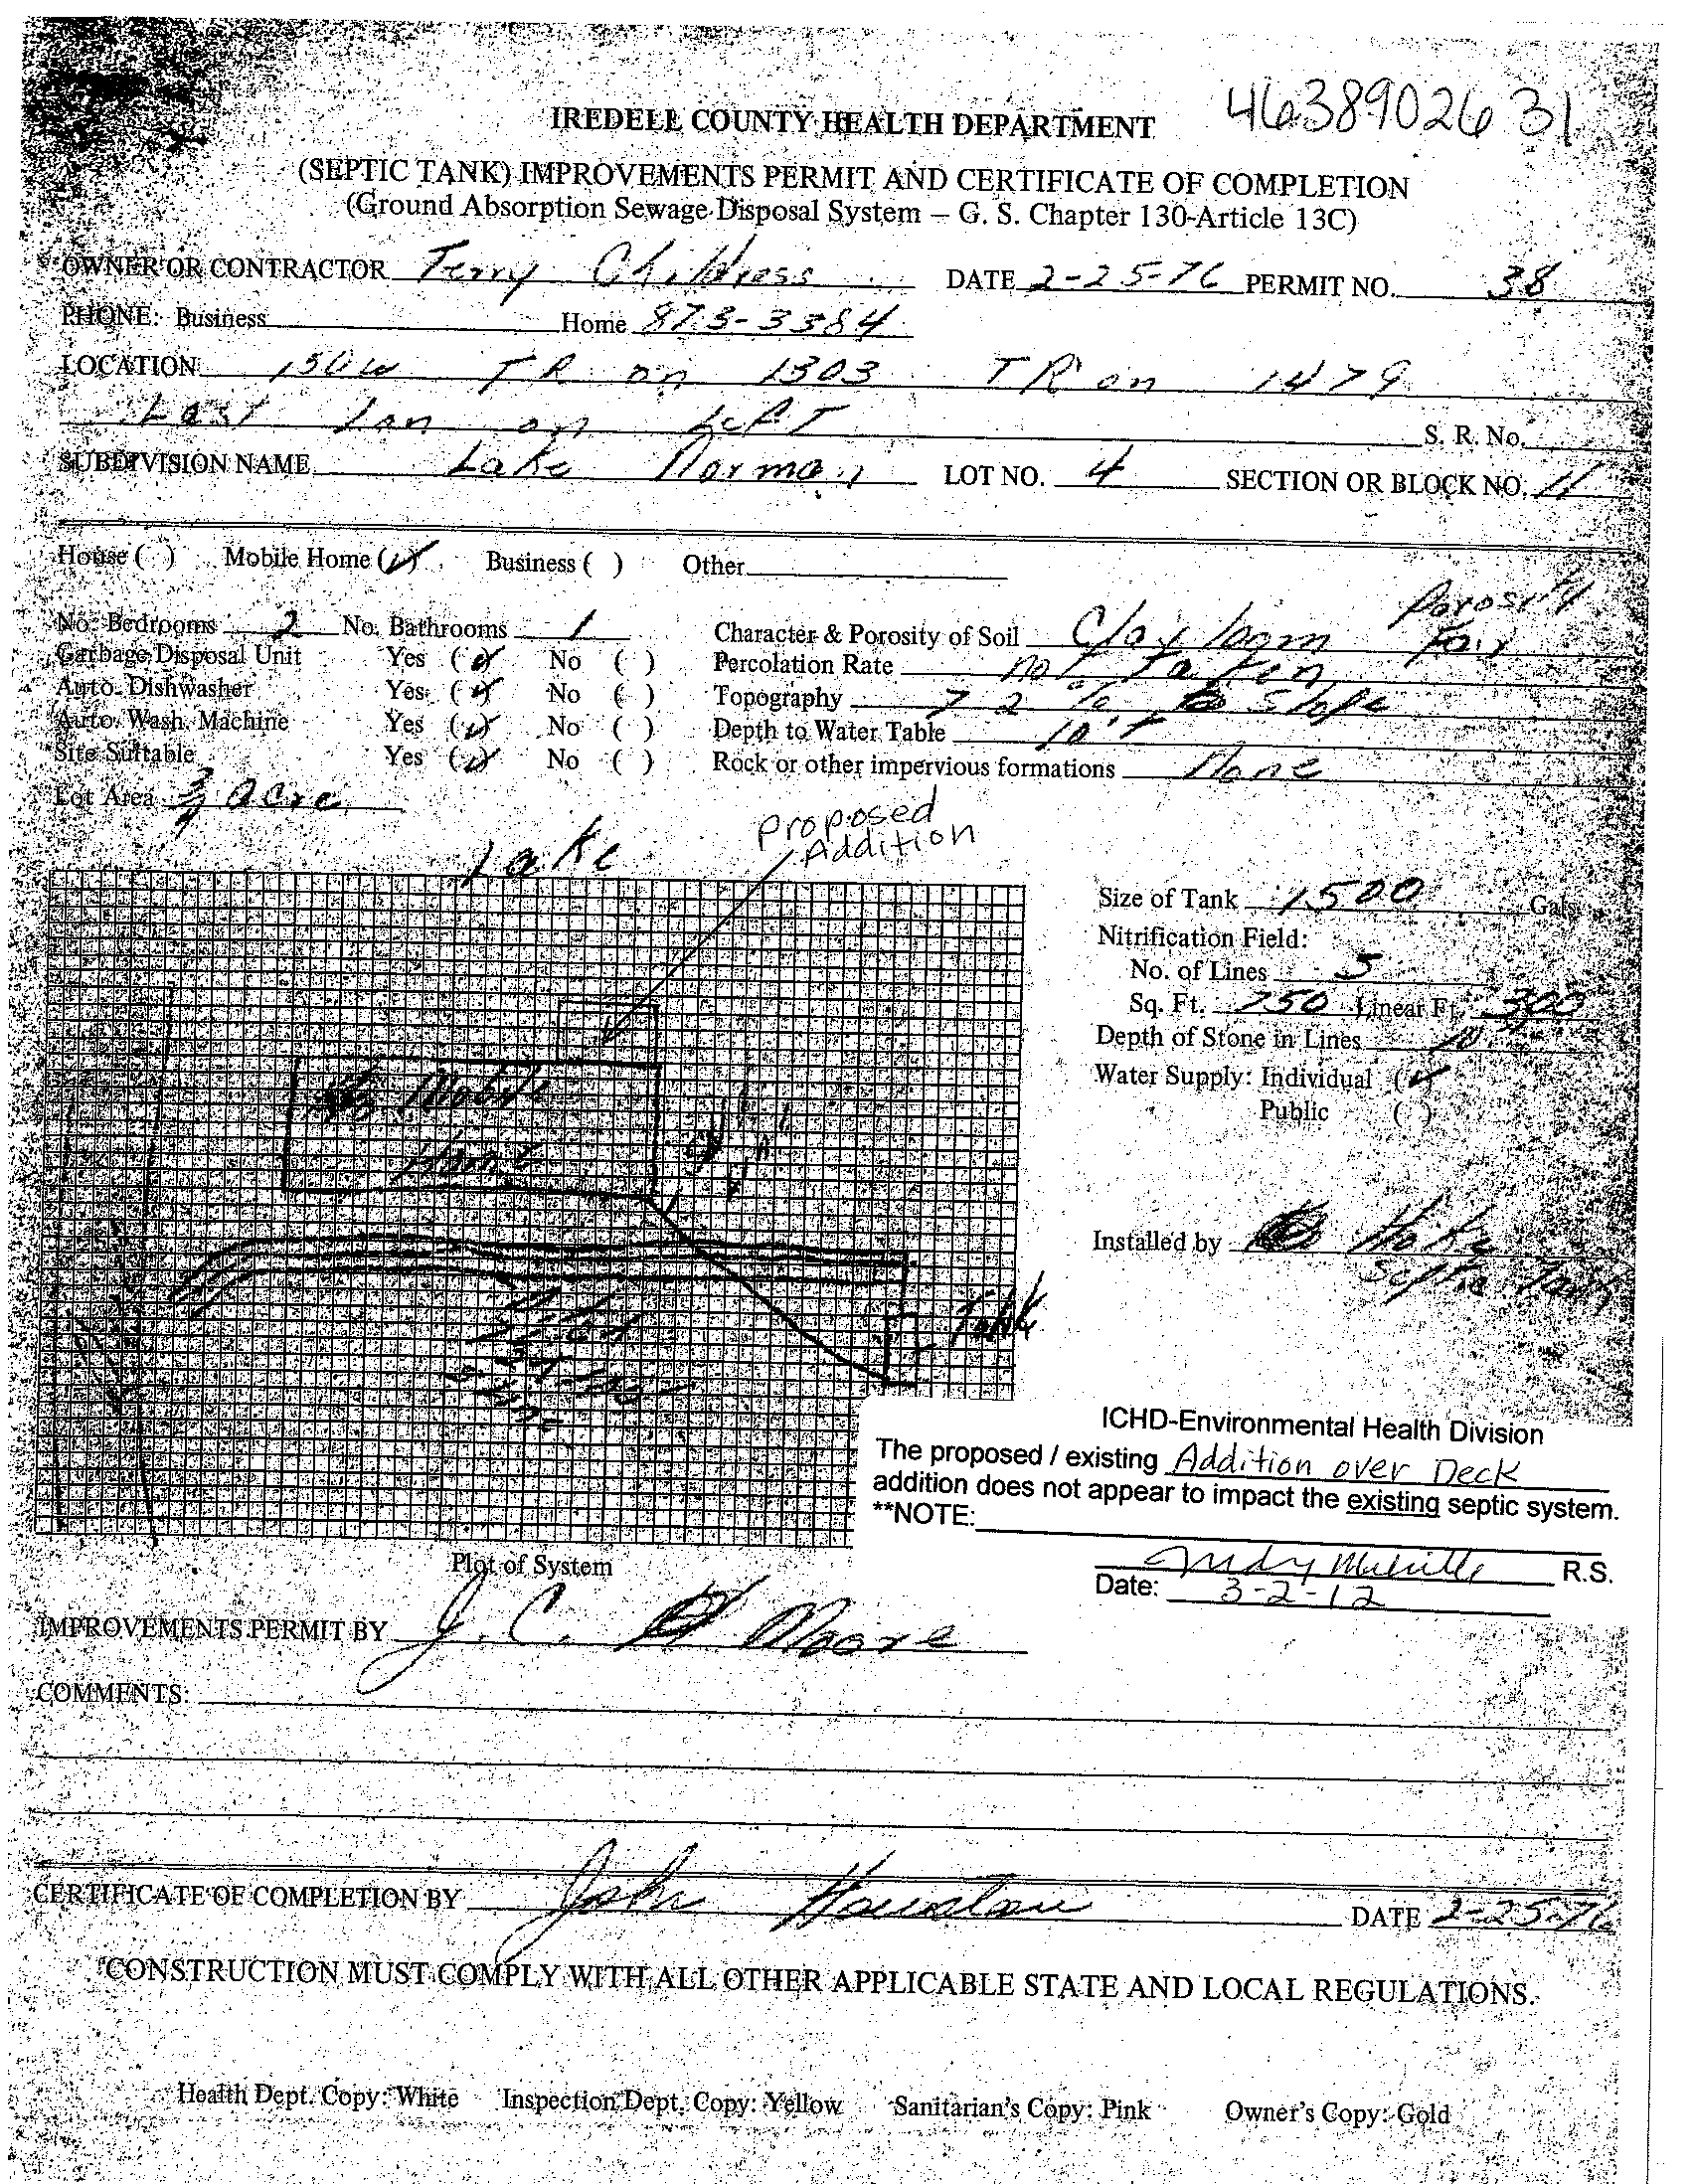 4638902631
IREDELL COUNTY HEALTH DEPARTMENT
(SEPTIC TANK) IMPROVEMENTS PERMIT AND CERTIFICATE OF COMPLETION
(Ground Absorption Sewage Disposal System – G. S. Chapter 130-Article 13C)
OWNER OR CONTRACTOR Terry Childress DATE 2-25-76 PERMIT NO. 38
PHONE: Business Home 873-3384
LOCATION 150W TR on 1303 TR on 1479
Last on Left S. R. No.
SUBDIVISION NAME Lake Norman LOT NO. 4 SECTION OR BLOCK NO.
House ( ) Mobile Home (✓) Business ( ) Other
Porosity
No. Bedrooms 2 No. Bathrooms 1 Character & Porosity of Soil Clay loam Fair
Garbage Disposal Unit Yes (✓) No ( ) Percolation Rate not taken
Auto. Dishwasher Yes (✓) No ( ) Topography 7 2 % Slope
Auto. Wash. Machine Yes (✓) No ( ) Depth to Water Table 10'+
Site Suitable Yes (✓) No ( ) Rock or other impervious formations None
Lot Area 3/4 acre
Lake
proposed
Addition
Size of Tank 1500 Gals.
Nitrification Field:
No. of Lines 5
Sq. Ft. 750 Linear Ft. 300
Depth of Stone in Lines 10
Water Supply: Individual (✓)
Public ( )
Mobile
Home
Installed by Hoke
Septic Tank
Tank
ICHD-Environmental Health Division
The proposed / existing Addition over Deck
addition does not appear to impact the existing septic system.
**NOTE:
Plot of System
Judy Melville R.S.
Date: 3-2-12
IMPROVEMENTS PERMIT BY J. C. Moore
COMMENTS:
CERTIFICATE OF COMPLETION BY John DATE 2-25-76
"CONSTRUCTION MUST COMPLY WITH ALL OTHER APPLICABLE STATE AND LOCAL REGULATIONS.
Health Dept. Copy: White Inspection Dept. Copy: Yellow Sanitarian's Copy: Pink Owner's Copy: Gold